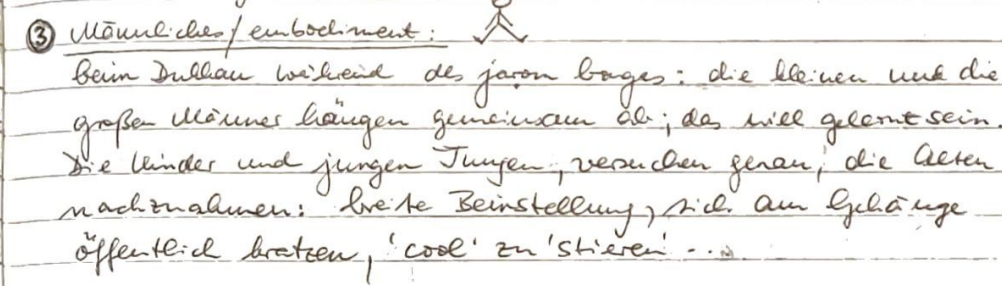 ③ Männliches/embodiment:
beim Dullhau während des jaron bages: die kleinen und die
großen Männer hängen gemeinsam ab; das will gelernt sein.
Die Kinder und jungen Jungen, versuchen genau, die Alten
nachznahmen: breite Beinstellung, sich am Gehänge
öffentlich kratzen, 'cool' zu 'stieren' ...